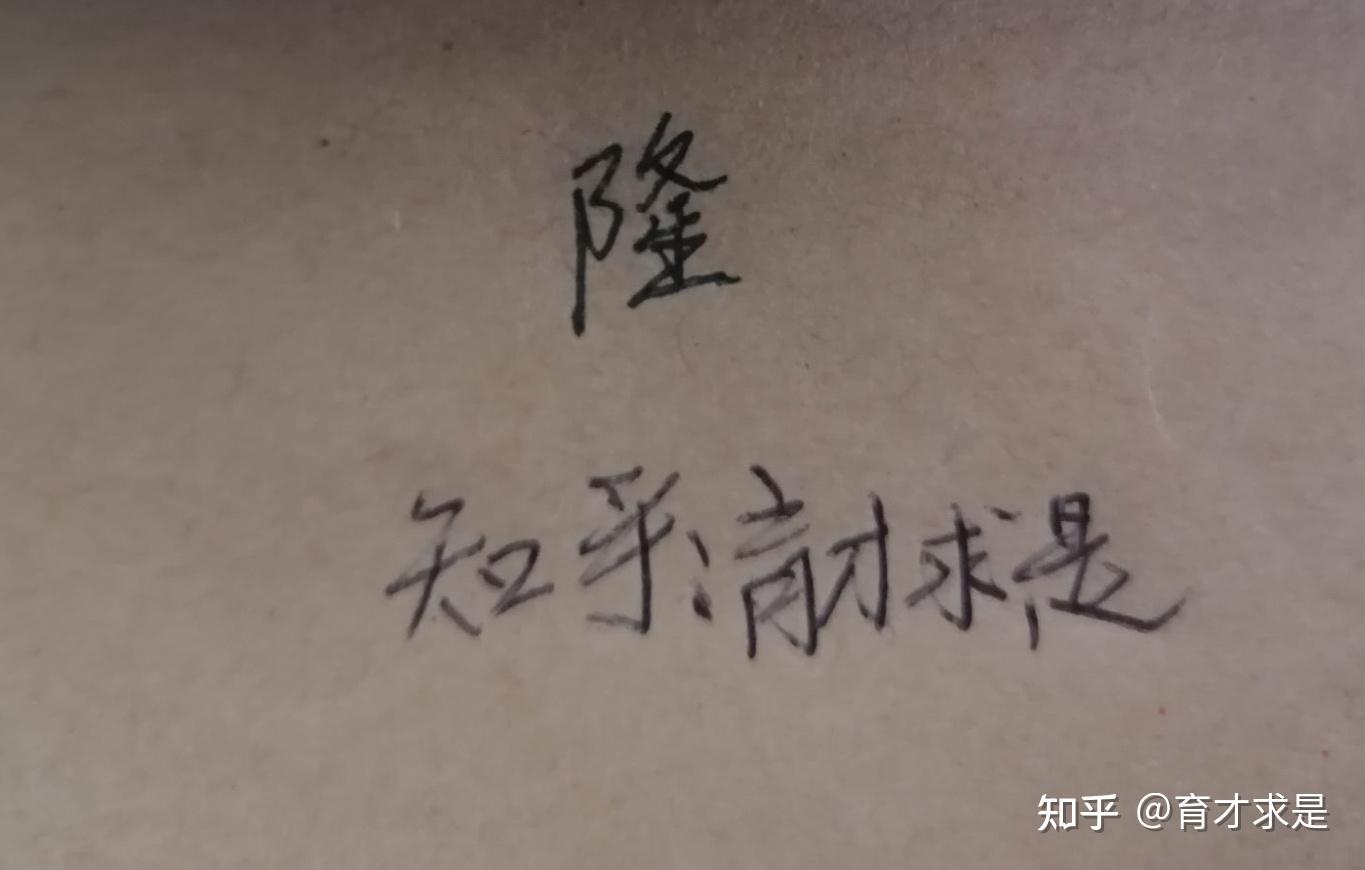 隆
知乎:育才求是
知乎 @育才求是